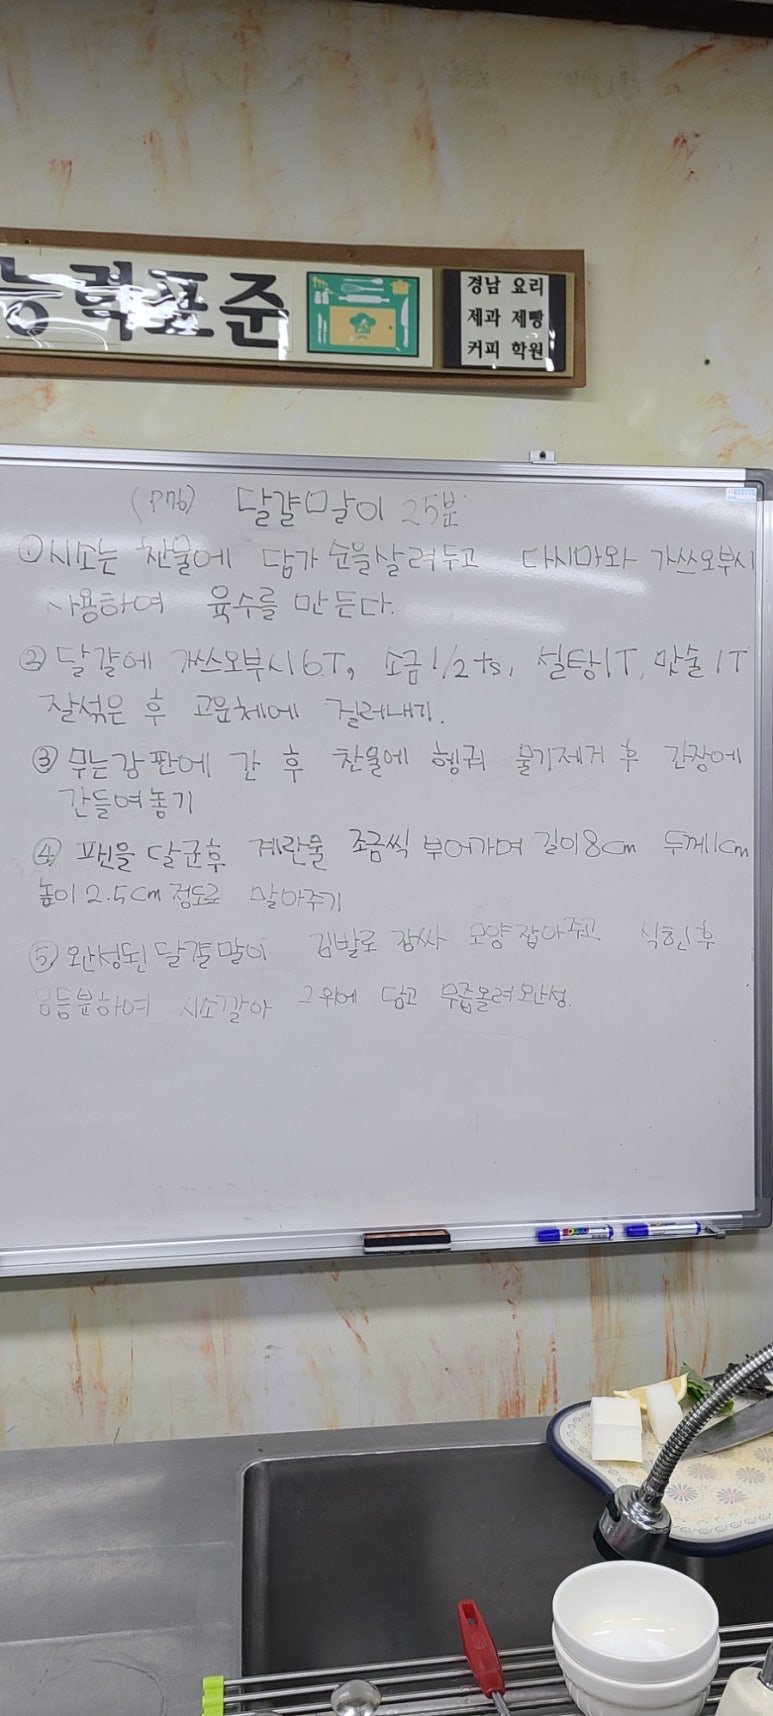 능력표준
경남 요리
제과 제빵
커피 학원
(P76) 달걀말이 25분
① 시소는 찬물에 담가 순을살려두고 다시마와 가쓰오부시
사용하여 육수를 만든다.
② 달걀에 가쓰오부시6T, 소금1/2ts, 설탕1T, 맛술1T
잘섞은 후 고운체에 걸러내기.
③ 무는강판에 간 후 찬물에 헹궈 물기제거 후 간장에
간들여놓기
④ 팬을 달군후 계란물 조금씩 부어가며 길이8cm 두께1cm
높이2.5cm정도로 말아주기
⑤ 완성된달걀말이 김발로 감싸 모양잡아주고 식힌후
등분하여 시소깔아 그위에 담고 무즙올려완성.